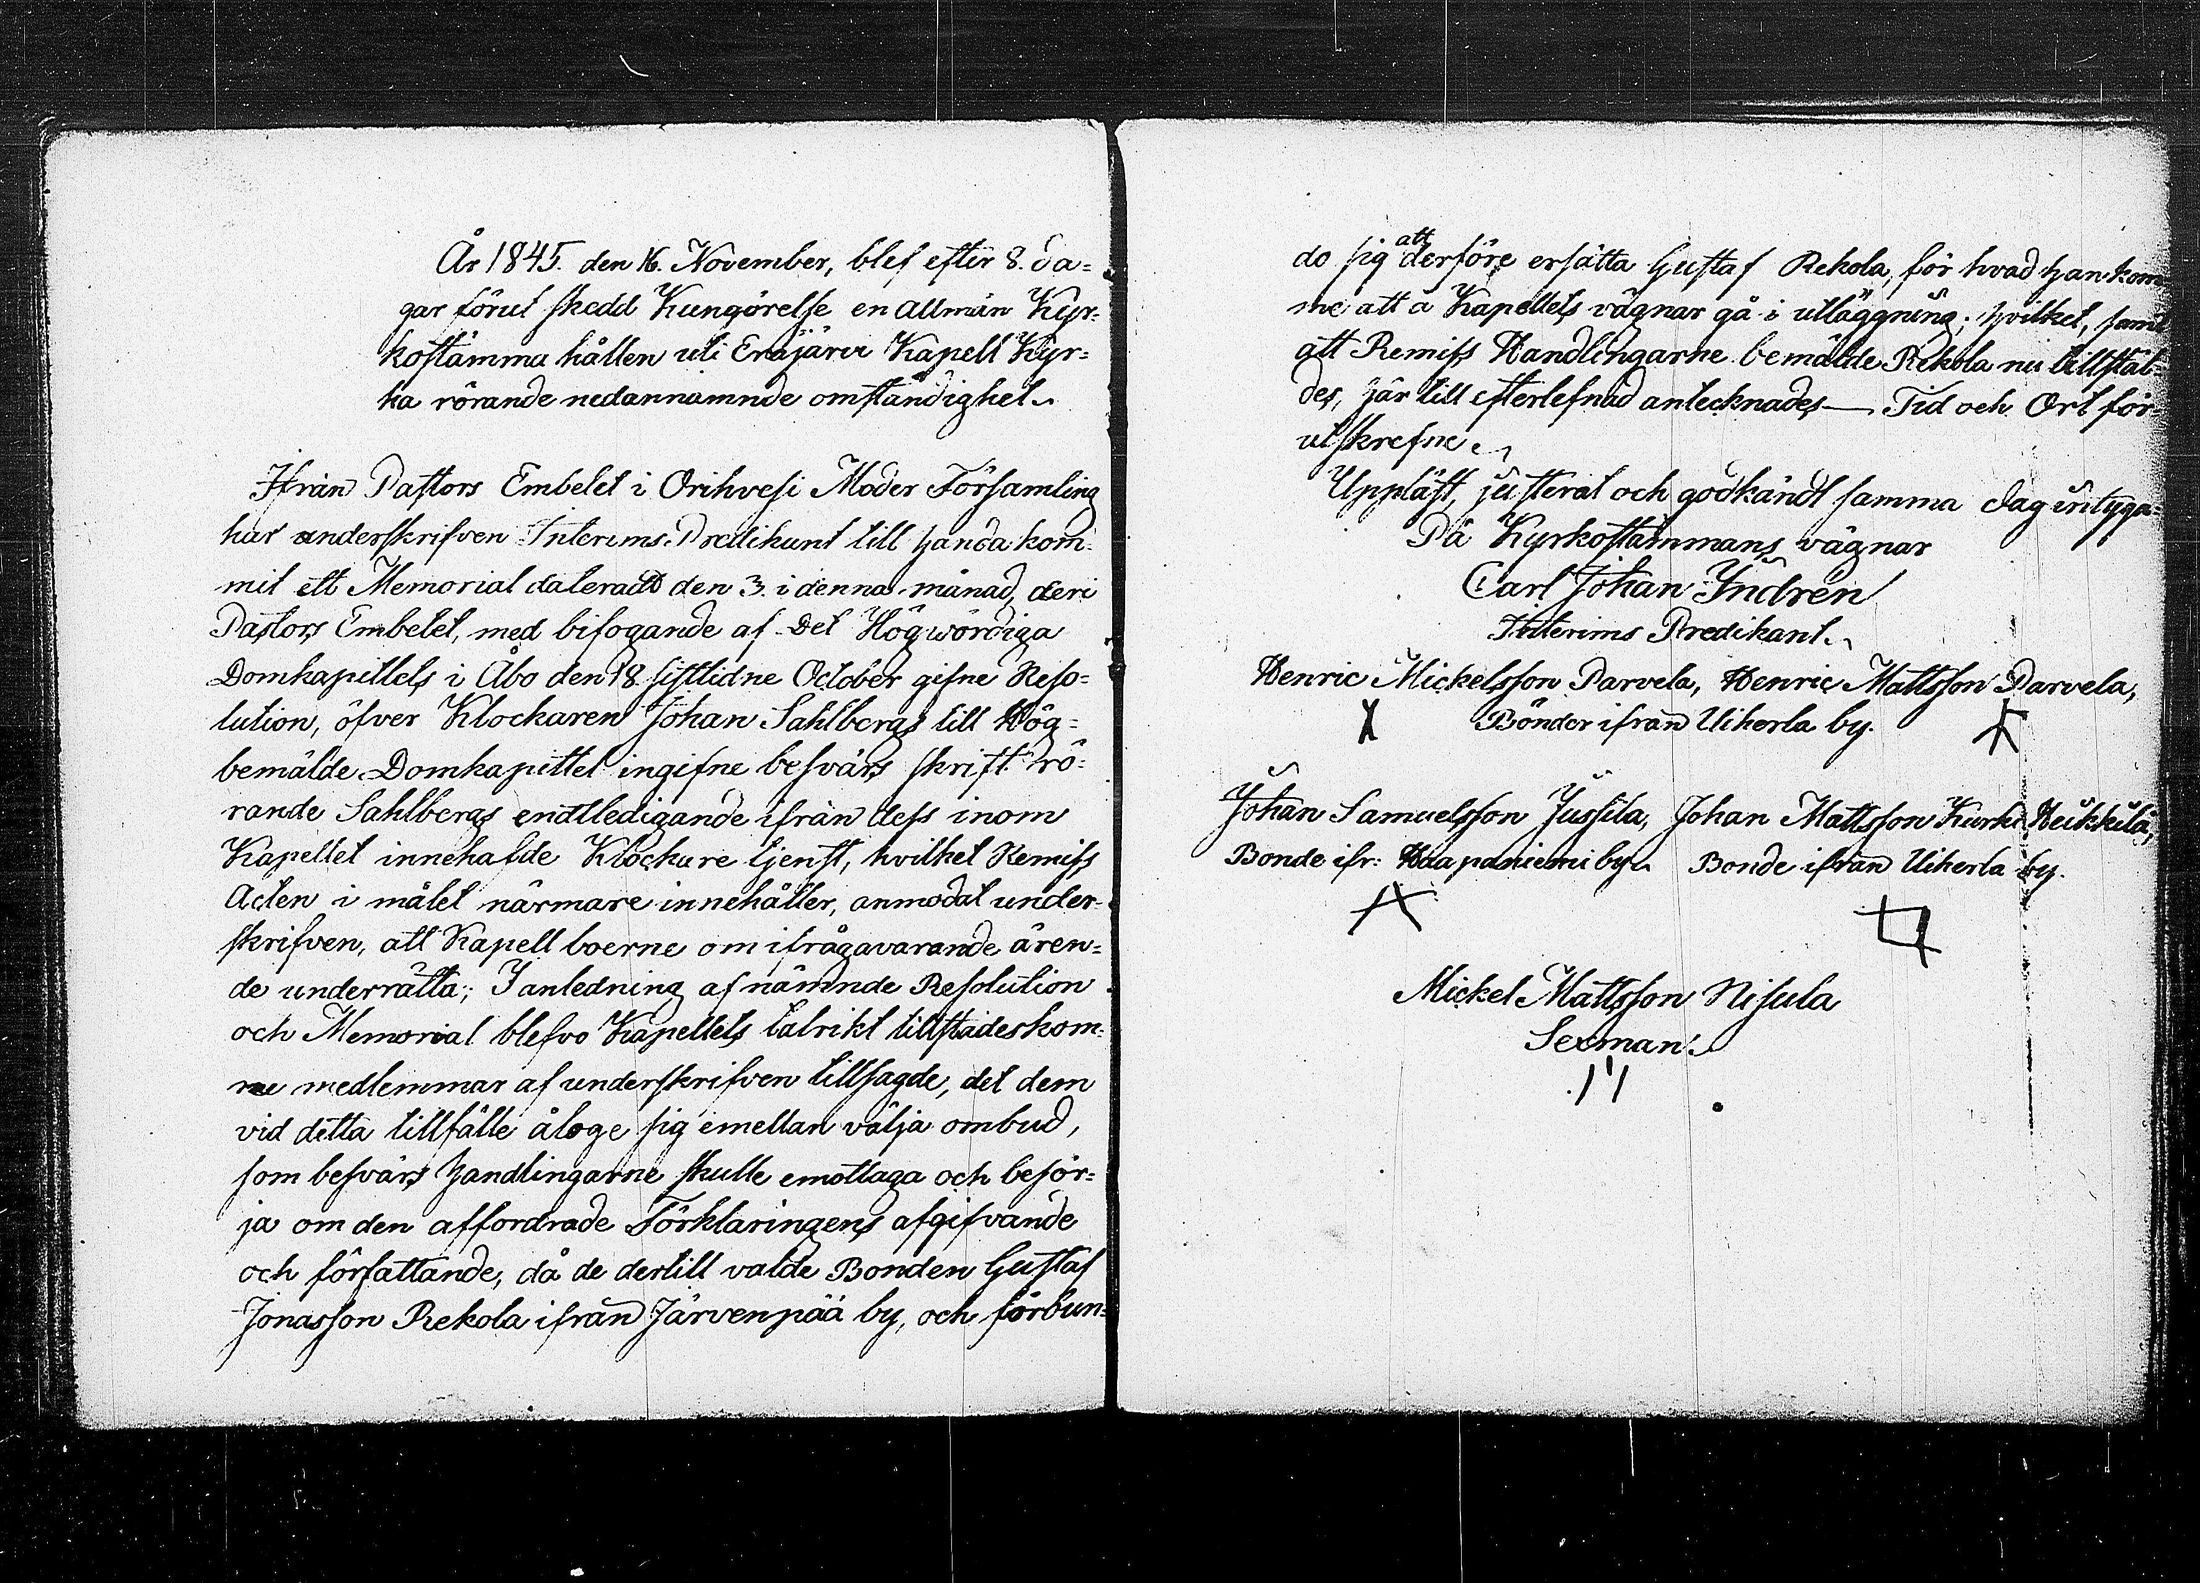 År 1845. den 16. November, blef efter 8. da=
gar förut skedd Kungörelse en allmän Kyr=
kostämma hållen uti Eräjärvi Kapell Kyr=
ka rörande nedannämnde omständighet.
Ifrån Pastors Embetet i Orihvesi Moder Församling
har underskrifven Interims Predikant till handa kom=
mit ett Memorial dateradt den 3. i denna månad, deri
Pastors Embetet, med bifogande af Det Högwördiga
Domkapitlets i Åbo den 18. sistlidne October gifne Reso=
lution, öfver Klockaren Johan Sahlbergs till Hög=
bemälde Domkapittel ingifne besvärs skrift rö=
rande Sahlbergs endtledigande ifrån dess inom
Kapellet innehafde Klockare tjenst, hvilket Remiss
Acten i målet närmare innehåller, anmodat under=
skrifven, att Kapell boerne om ifrågavarande ären=
de underrätta; I anledning af nämnde Resolution
och Memorial blefvo Kapellets talrikt tillstädeskom=
ne medlemmar af underskrifven tillsagde, det dem
vid detta tillfälle åloge sig emellan välja ombud,
som besvärs handlingarne skulle emottaga och besör=
ja om den affordrade Förklaringens afgifvande
och författande, då de dertill valde Bonden Gustaf
Jonasson Rekola ifrån Järvenpää by, och förbun=
do sig att derföre ersätta Gustaf Rekola, för hvad han kom
me att å Kapellets vägnar gå i utläggning; hvilket, samt
att Remiss Handlingarne bemälde Rekola nu tillstäl=
des, här till efterlefnad antecknades — Tid och Ort för=
utskrefne.
Uppläst, justerat och godkändt samma dag intyga=
På Kyrkostämmans vägnar
Carl Johan Yndrén
Interims Predikant.
Henric Mickelsson Parvela, Henric Mattsson Parvela,
Bönder ifrån Uiherla by.
Johan Samuelsson Jussila, Johan Mattsson Kurki Heikkilä,
Bonde ifr: Haapaniemi by. Bonde ifrån Uiherla by.
Mickel Mattsson Nisula
Sexman.